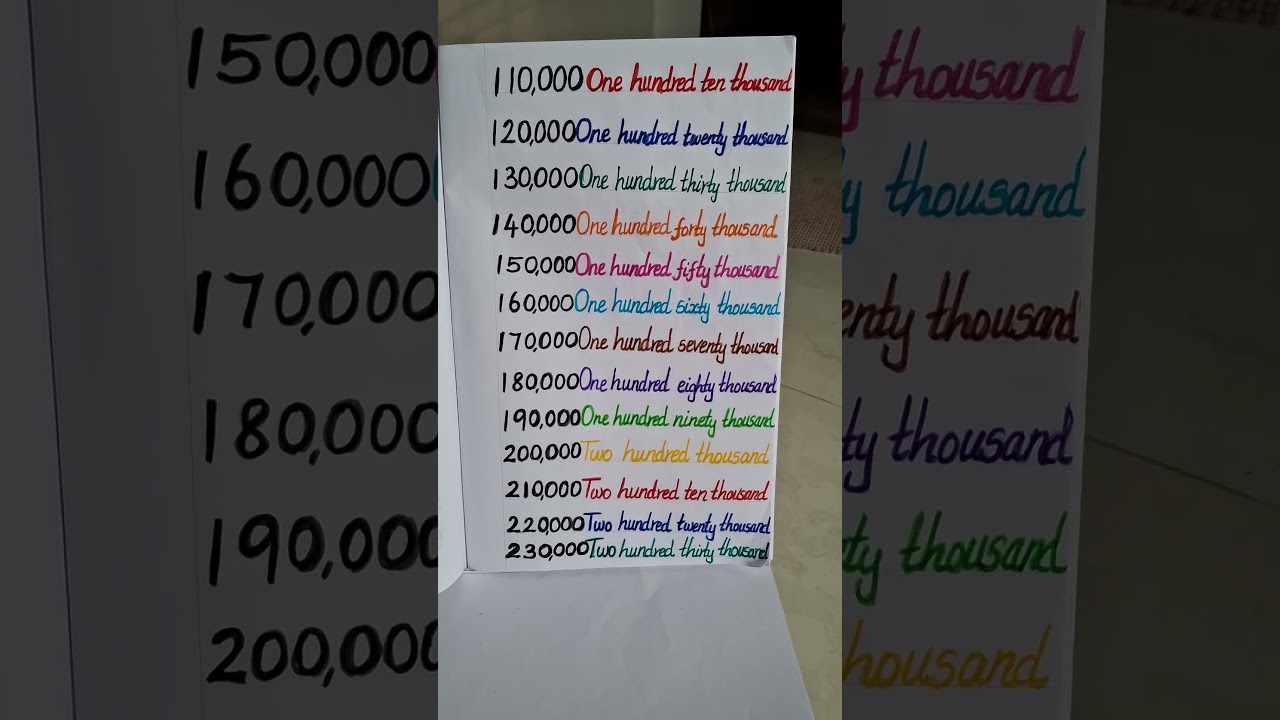 110,000 One hundred ten thousand
120,000 One hundred twenty thousand
130,000 One hundred thirty thousand
140,000 One hundred forty thousand
150,000 One hundred fifty thousand
160,000 One hundred sixty thousand
170,000 One hundred seventy thousand
180,000 One hundred eighty thousand
190,000 One hundred ninety thousand
200,000 Two hundred thousand
210,000 Two hundred ten thousand
220,000 Two hundred twenty thousand
230,000 Two hundred thirty thousand